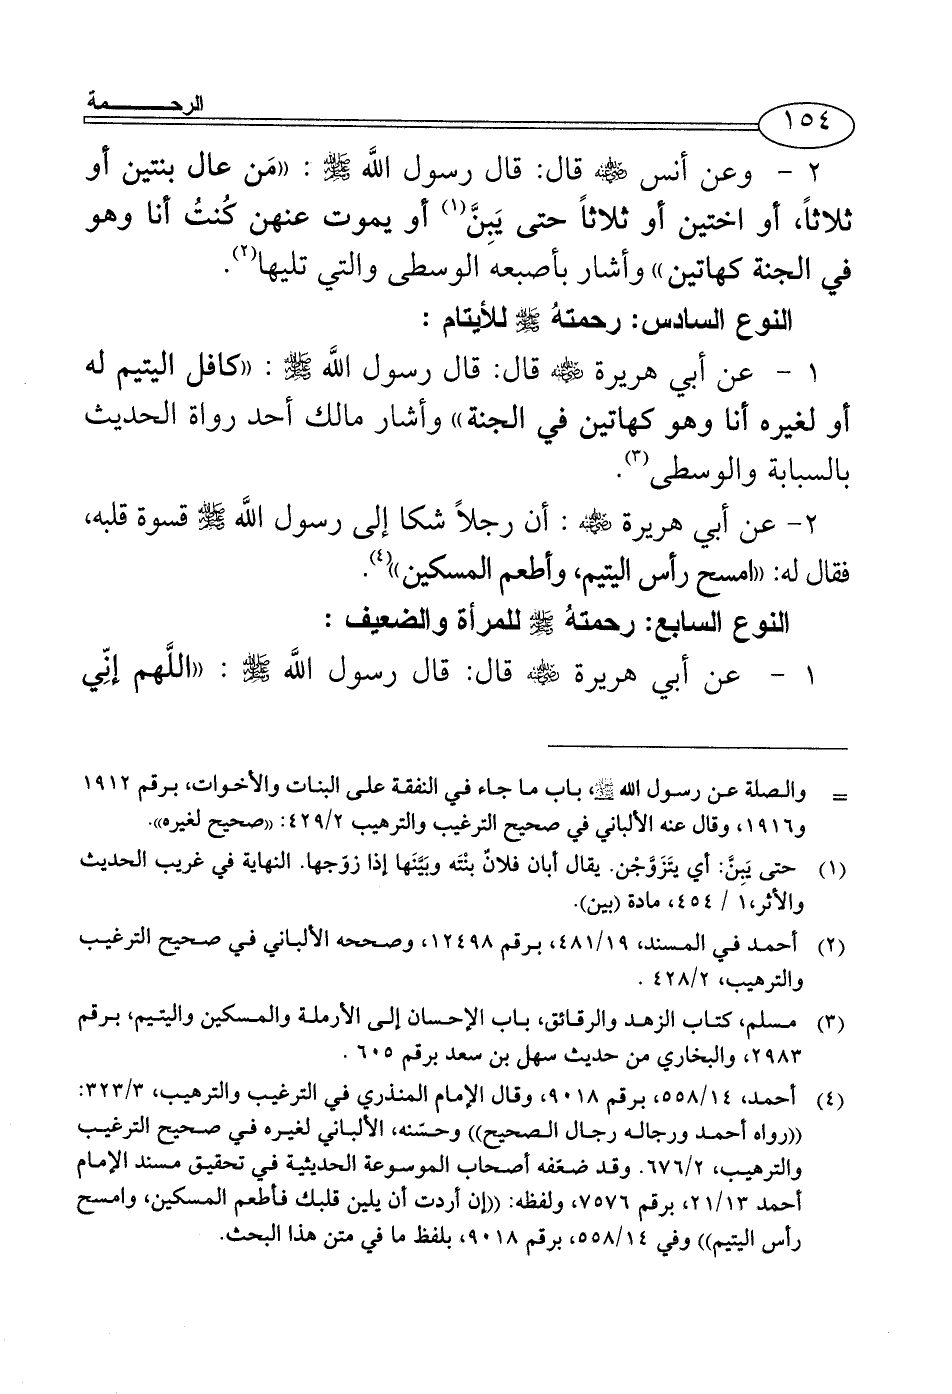 ١٥٤ الرحـــــــمة
٢ - وعن أنس ﷺ قال: قال رسول اللَّه ﷺ : «مَن عال بنتين أو
ثلاثاً، أو اختين أو ثلاثاً حتى يَبِنَّ(١) أو يموت عنهن كُنتُ أنا وهو
في الجنة كهاتين» وأشار بأصبعه الوسطى والتي تليها(٢).
النوع السادس: رحمتهُ ﷺ للأيتام :
١ - عن أبي هريرة رضي الله عنه قال: قال رسول اللَّه ﷺ : «كافل اليتيم له
أو لغيره أنا وهو كهاتين في الجنة» وأشار مالك أحد رواة الحديث
بالسبابة والوسطى(٣).
٢- عن أبي هريرة رضي الله عنه : أن رجلاً شكا إلى رسول اللَّه ﷺ قسوة قلبه،
فقال له: «امسح رأس اليتيم، وأطعم المسكين»(٤).
النوع السابع: رحمتهُ ﷺ للمرأة والضعيف :
١ - عن أبي هريرة رضي الله عنه قال: قال رسول اللَّه ﷺ : «اللَّهم إنِّي
= والصلة عن رسول الله ﷺ، باب ما جاء في النفقة على البنات والأخوات، برقم ١٩١٢
و١٩١٦، وقال عنه الألباني في صحيح الترغيب والترهيب ٤٢٩/٢: «صحيح لغيره».
(١) حتى يَبِنَّ: أي يتَزَوَّجْن. يقال أبان فلانٌ بنْتَه وبَيَّنَها إذا زوّجها. النهاية في غريب الحديث
والأثر،١ / ٤٥٤، مادة (بين).
(٢) أحمد في المسند، ٤٨١/١٩، برقم ١٢٤٩٨، وصححه الألباني في صحيح الترغيب
والترهيب، ٤٢٨/٢ .
(٣) مسلم، كتاب الزهد والرقائق، باب الإحسان إلى الأرملة والمسكين واليتيم، برقم
٢٩٨٣، والبخاري من حديث سهل بن سعد برقم ٦٠٥ .
(٤) أحمد، ٥٥٨/١٤، برقم ٩٠١٨، وقال الإمام المنذري في الترغيب والترهيب، ٣٢٣/٣:
((رواه أحمد ورجاله رجال الصحيح)) وحسّنه، الألباني لغيره في صحيح الترغيب
والترهيب، ٦٧٦/٢. وقد ضعّفه أصحاب الموسوعة الحديثية في تحقيق مسند الإمام
أحمد ٢١/١٣، برقم ٧٥٧٦، ولفظه: ((إن أردت أن يلين قلبك فأطعم المسكين، وامسح
رأس اليتيم)) وفي ٥٥٨/١٤، برقم ٩٠١٨، بلفظ ما في متن هذا البحث.